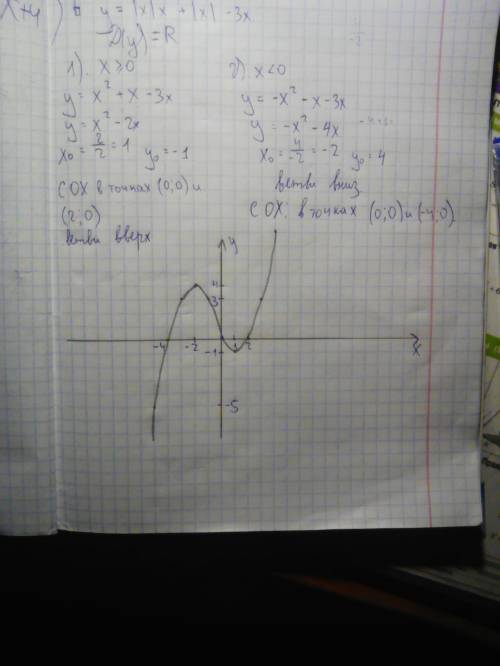 y = |x|x + |x| - 3x
D(y) = R
1). x ≥ 0
y = x² + x - 3x
y = x² - 2x
x₀ = 2/2 = 1 y₀ = -1
С OX в точках (0;0) и
(2;0)
ветви вверх
2). x < 0
y = -x² - x - 3x
y = -x² - 4x
x₀ = 4/-2 = -2 y₀ = 4
ветви вниз
С OX: в точках (0;0) и (-4;0)
y
4
3
-4 -2 1 2 x
-1
-5